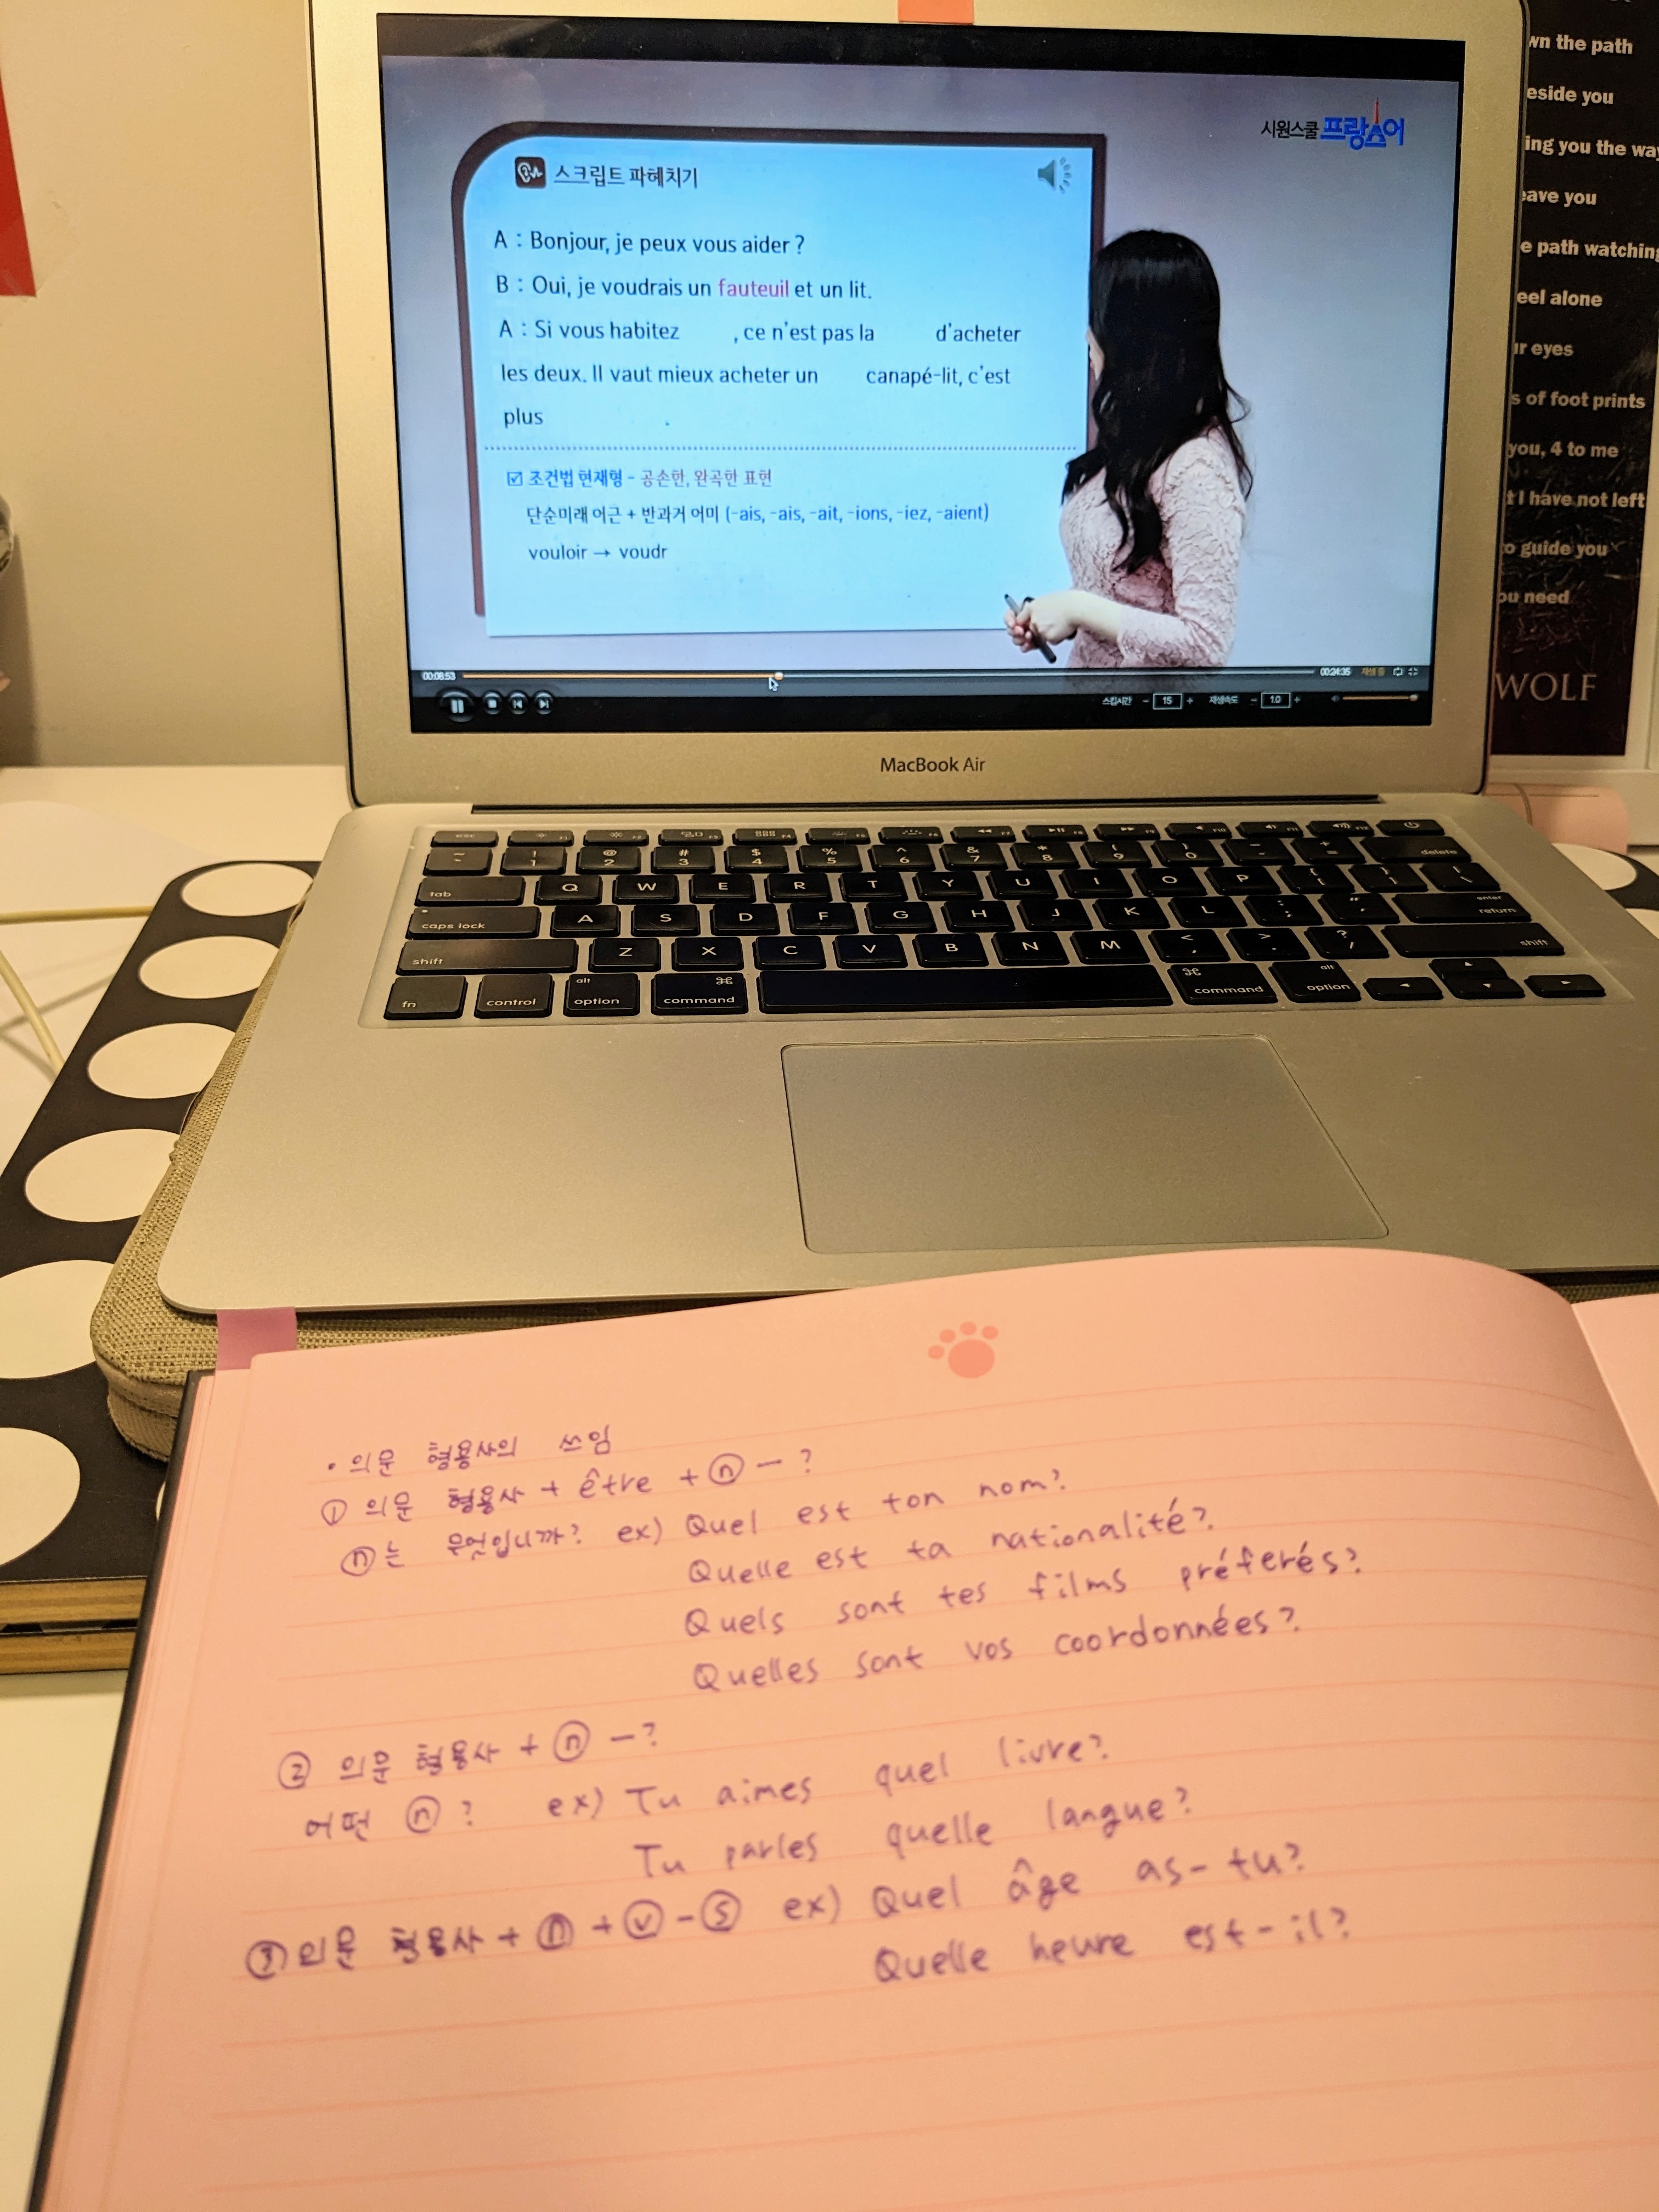 시원스쿨 프랑스어
스크립트 파헤치기
A : Bonjour, je peux vous aider ?
B : Oui, je voudrais un fauteuil et un lit.
A : Si vous habitez , ce n'est pas la d'acheter
les deux. Il vaut mieux acheter un canapé-lit, c'est
plus .
☑ 조건법 현재형 - 공손한, 완곡한 표현
단순미래 어근 + 반과거 어미 (-ais, -ais, -ait, -ions, -iez, -aient)
vouloir → voudr
00:08:53
00:24:35 재생 중
스킵시간 - 15 + 재생속도 - 1.0 +
wn the path
eside you
ing you the way
eave you
e path watching
eel alone
ur eyes
s of foot prints
you, 4 to me
t I have not left
to guide you
ou need
WOLF
MacBook Air
esc F1 F2 F3 F4 F5 F6 F7 F8 F9 F10 F11 F12
~ ` ! 1 @ 2 # 3 $ 4 % 5 ^ 6 & 7 * 8 ( 9 ) 0 _ - + = delete
tab Q W E R T Y U I O P { [ } ] | \
caps lock A S D F G H J K L : ; " ' enter return
shift Z X C V B N M < , > . ? / shift
fn control alt option ⌘ command ⌘ command alt option
• 의문 형용사의 쓰임
① 의문 형용사 + être + ⓝ — ?
ⓝ는 무엇입니까? ex) Quel est ton nom?
Quelle est ta nationalité?
Quels sont tes films préferés?
Quelles sont vos coordonnées?
② 의문 형용사 + ⓝ —?
어떤 ⓝ ? ex) Tu aimes quel livre?
Tu parles quelle langue?
③ 의문 형용사 + ⓝ + ⓥ - ⓢ ex) Quel âge as-tu?
Quelle heure est-il?